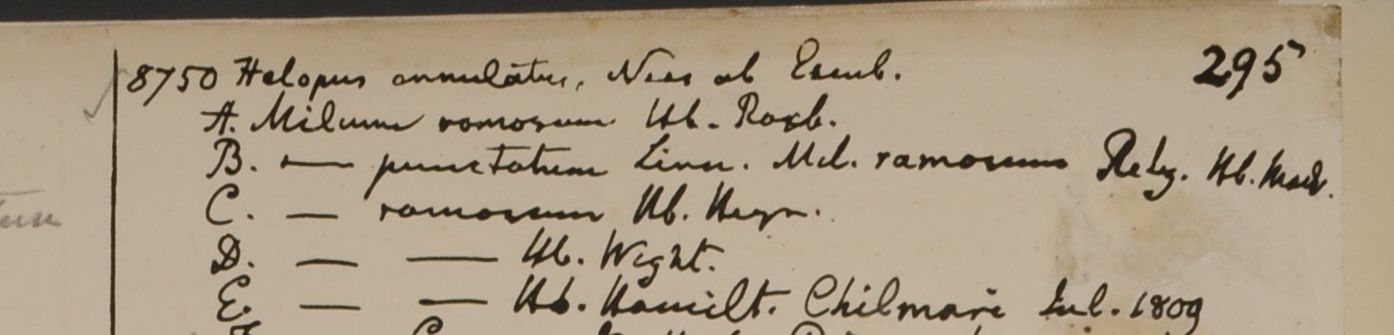 8750 Helopus annulatus, Nees ab Esenb. 295
A. Milium ramosum Hb. Roxb.
B. — punctatum Linn. Mil. ramosum Retz. Hb. Madr.
C. — ramosum Hb. Heyn.
D. — — Hb. Wight.
E. — — Hb. Hamilt. Chilmari Jul. 1809